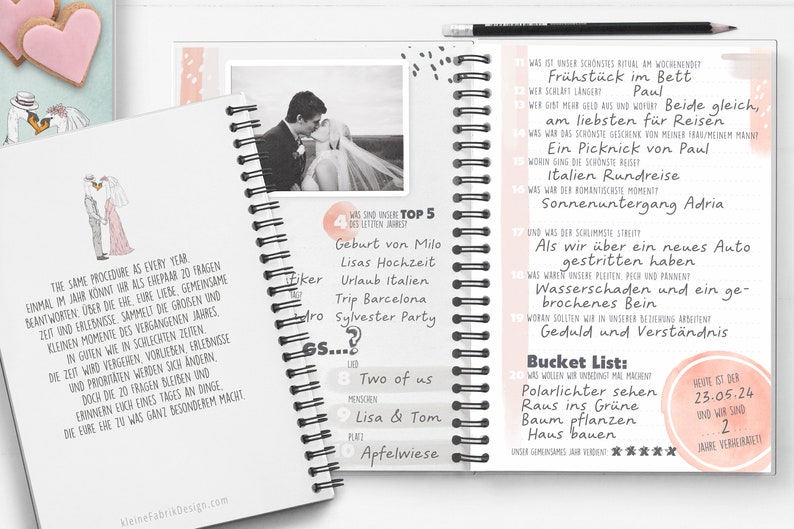 THE SAME PROCEDURE AS EVERY YEAR.
EINMAL IM JAHR KÖNNT IHR ALS EHEPAAR 20 FRAGEN
BEANTWORTEN: ÜBER DIE EHE, EURE LIEBE, GEMEINSAME
ZEIT UND ERLEBNISSE. SAMMELT DIE GROSSEN UND
KLEINEN MOMENTE DES VERGANGENEN JAHRES,
IN GUTEN WIE IN SCHLECHTEN ZEITEN.
DIE ZEIT WIRD VERGEHEN. VORLIEBEN, ERLEBNISSE
UND PRIORITÄTEN WERDEN SICH ÄNDERN,
DOCH DIE 20 FRAGEN BLEIBEN UND
ERINNERN EUCH EINES TAGES AN DINGE,
DIE EURE EHE ZU WAS GANZ BESONDEREM MACHT.
kleineFabrikDesign.com
4 WAS SIND UNSERE TOP 5
DES LETZTEN JAHRES?
Geburt von Milo
Lisas Hochzeit
fiker Urlaub Italien
TAG?
Trip Barcelona
dro Sylvester Party
GS...?
LIED
8 Two of us
MENSCHEN
9 Lisa & Tom
PLATZ
0 Apfelwiese
11 WAS IST UNSER SCHÖNSTES RITUAL AM WOCHENENDE?
Frühstück im Bett
12 WER SCHLÄFT LÄNGER? Paul
13 WER GIBT MEHR GELD AUS UND WOFÜR? Beide gleich,
am liebsten für Reisen
14 WAS WAR DAS SCHÖNSTE GESCHENK VON MEINER FRAU/MEINEM MANN?
Ein Picknick von Paul
15 WOHIN GING DIE SCHÖNSTE REISE?
Italien Rundreise
16 WAS WAR DER ROMANTISCHSTE MOMENT?
Sonnenuntergang Adria
17 UND WAS DER SCHLIMMSTE STREIT?
Als wir über ein neues Auto
gestritten haben
18 WAS WAREN UNSERE PLEITEN, PECH UND PANNEN?
Wasserschaden und ein ge-
brochenes Bein
19 WORAN SOLLTEN WIR IN UNSERER BEZIEHUNG ARBEITEN?
Geduld und Verständnis
Bucket List:
20 WAS WOLLEN WIR UNBEDINGT MAL MACHEN?
Polarlichter sehen
Raus ins Grüne
Baum pflanzen
Haus bauen
UNSER GEMEINSAMES JAHR VERDIENT:
HEUTE IST DER
23.05.24
UND WIR SIND
2
JAHRE VERHEIRATET!